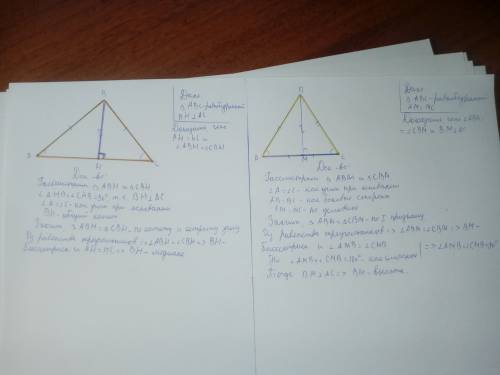 B
Дано:
△ ABC - равнобедренный
BH ⊥ AC
Доказать, что
AH = HC и
∠ABH = ∠CBH
H
Док-во:
Рассмотрим △ ABH и △ CBH
∠AHB = ∠CHB = 90° т.к. BH ⊥ AC
∠A = ∠C - как углы при основании
BH - общий катет
Значит, △ ABH = △ CBH, по катету и острому углу
Из равенства треугольников => ∠ABH = ∠CBH => BH -
биссектриса и AH = HC => BH - медиана.
B
Дано:
△ ABC - равнобедренный
AM = MC
Доказать, что ∠ABM =
= ∠CBM и BM ⊥ AC
M
C
Док-во:
Рассмотрим △ ABM и △ CBM
∠A = ∠C - как углы при основании
AB = BC - как боковые стороны
AM = MC - по условию
Значит, △ ABM = △ CBM - по I признаку
Из равенства треугольников => ∠ABM = ∠CBM => BM -
биссектриса и ∠AMB = ∠CMB
Но ∠AMB + ∠CMB = 180° - как смежные => ∠AMB = ∠CMB = 90°
Тогда BM ⊥ AC => BM - высота.